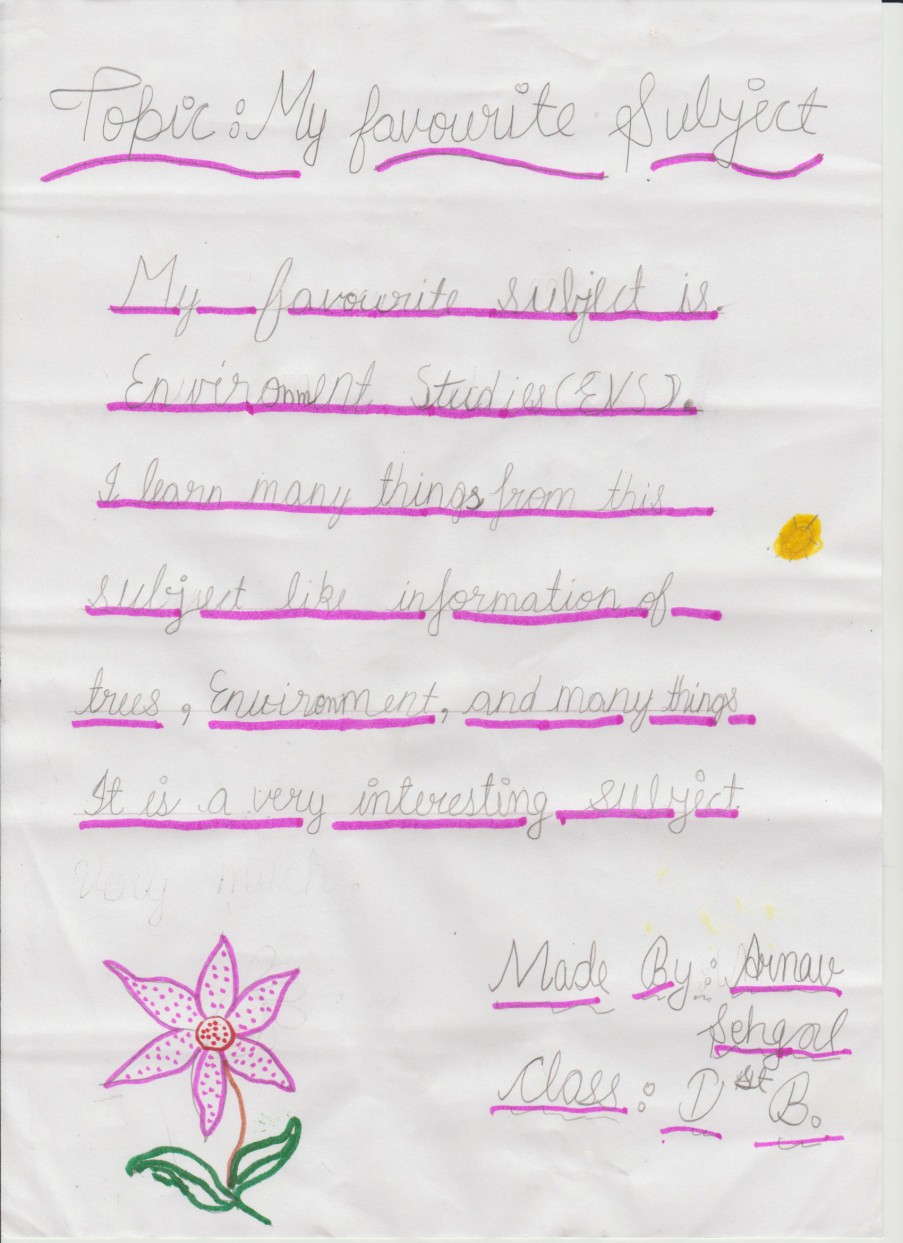 Topic: My favourite Subject
My favourite subject is
Environment Studies (EVS).
I learn many things from this
subject like information of
trees, Environment, and many things
It is a very interesting subject
very much.
Made By: Arnav
Sehgal
Class: D st B.